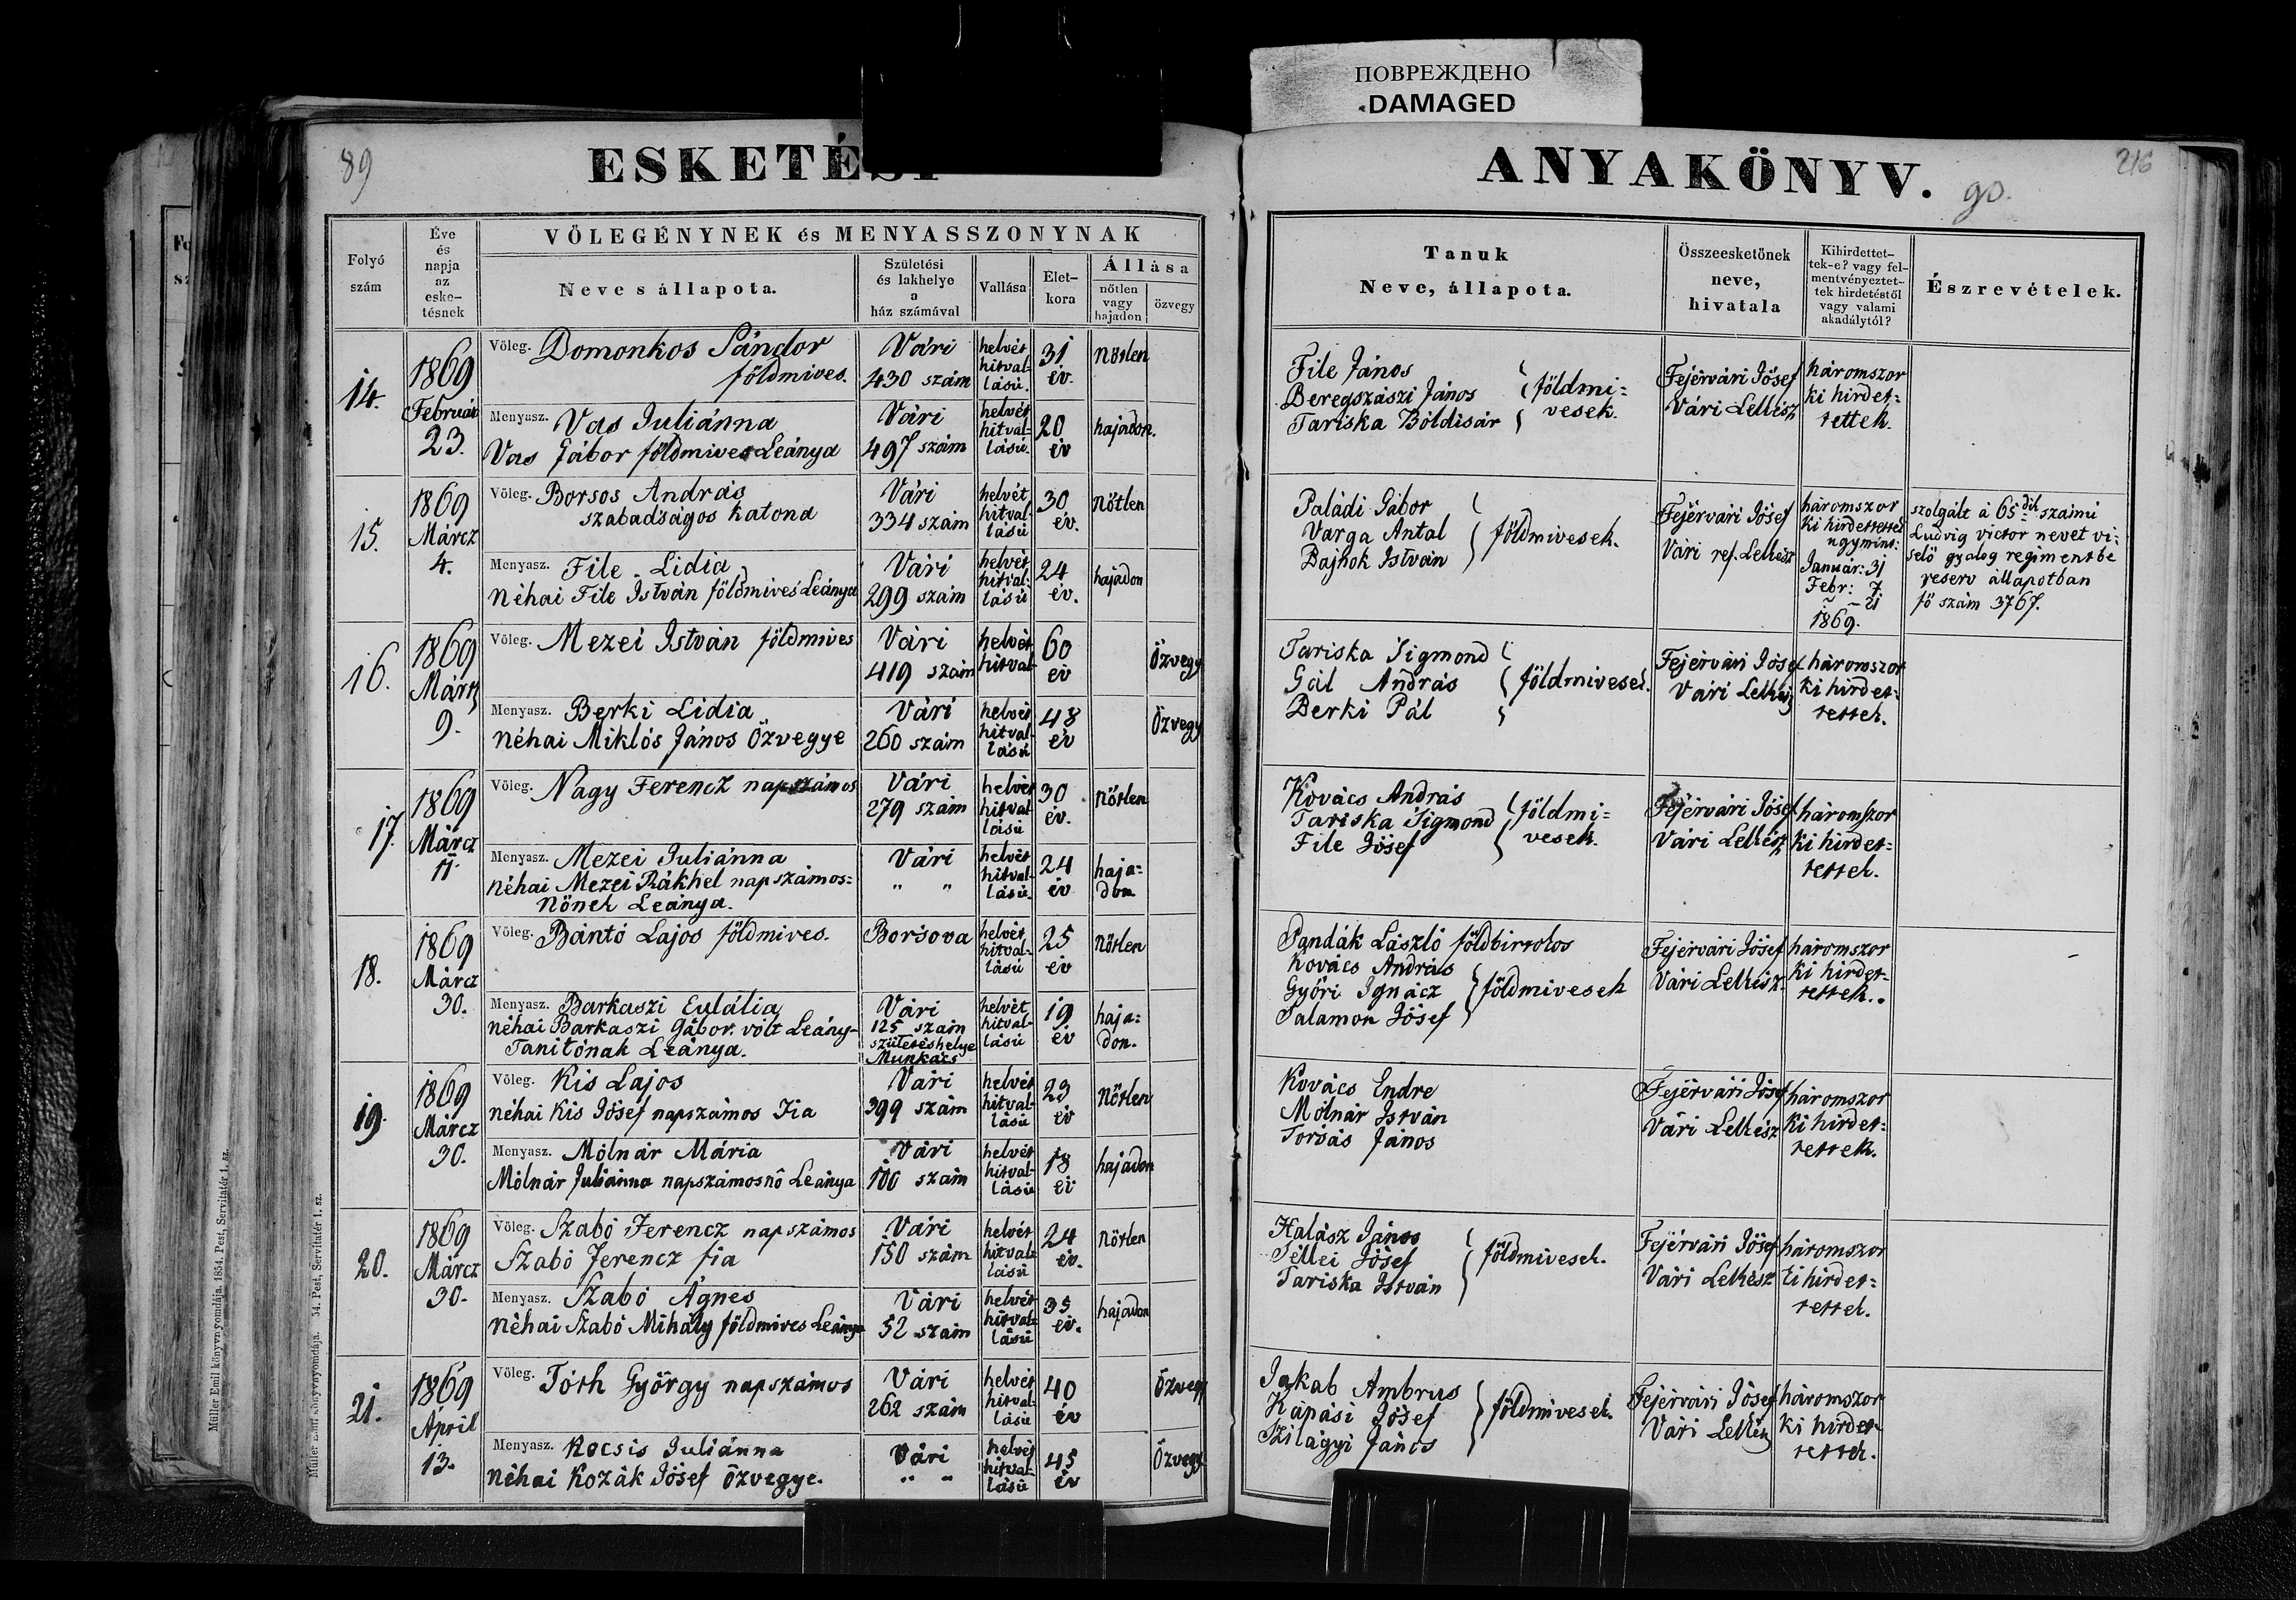 ПОВРЕЖДЕНО
DAMAGED
89
ESKETÉSI
ANYAKÖNYV.
90.
216
Folyó
szám
Éve
és
napja
az
eske-
tésnek
VŐLEGÉNYNEK és MENYASSZONYNAK
Neve s állapota.
Születési
és lakhelye
a
ház számával
Vallása
Élet-
kora
Állása
nőtlen
vagy
hajadon
özvegy
Tanuk
Neve, állapota.
Összeesketőnek
neve,
hivatala
Kihirdettet-
tek-e? vagy fel-
mentvényeztet-
tek hirdetéstől
vagy valami
akadálytól?
Észrevételek.
14.
1869
Február
23.
Völeg. Domonkos Sándor
földmives.
Vári
430 szám
helvét
hitval-
lásu.
31
év.
Nőtlen
Menyasz. Vas Juliánna
Vas Gábor földmives Leánya
Vári
497 szám
helvét
hitval-
lásu.
20
év
hajadon.
File János
Beregszászi János
Tariska Boldisár
földmi=
vesek.
Fejérvári Jósef
Vári Lelkész
háromszor
ki hirdet=
tettek.
15.
1869
Márcz
4.
Völeg. Borsos András
szabadságos katona
Vári
334 szám
helvét
hitval-
lásu
30
év.
Nőtlen
Menyasz. File Lidia
néhai File István földmives Leánya
Vári
299 szám
helvét
hitval-
lásu
24
év.
hajadon
Paládi Gábor
Varga Antal
Bajnok István
földmivesek.
Fejérvári Jósef
Vári ref. Lelkész
háromszor
ki hirdettettek
ugymint:
Január: 31
Febr: 7.
" – 21
1869.
szolgált á 65dik számú
Ludvig victor nevet vi=
selö gyalog regimentbe
reserv állapotban
fö szám 3767.
16.
1869
Märtz
9.
Völeg. Mezei István földmives
Vári
419 szám
helvét
hitval-
60
év
Özvegy
Menyasz. Berki Lidia
néhai Miklós János Özvegye
Vári
260 szám
helvét
hitval-
lásu
48
év
Özvegy
Tariska Sigmond
Gál András
Berki Pál
földmivesek.
Fejérvári Jósef
Vári Lelkész
háromszor
ki hirdet=
tettek.
17.
1869
Márcz
11.
Völeg. Nagy Ferencz napszámos
Vári
279 szám
helvét
hitval
lásu
30
év.
Nőtlen
Menyasz. Mezei Juliánna
néhai Mezei Rákhel napszámos=
Nönek Leánya.
Vári
" "
helvét
hitval-
lásu.
24
év
haja=
don
Kovács András
Tariska Sigmond
File Jósef
földmi=
vesek.
Fejérvári Jósef
Vári Lelkész
háromszor
ki hirdet=
tettek.
18.
1869
Márcz
30.
Völeg. Bántó Lajos földmives.
Borsova
helvét
hitval-
lásu
25
év
Nőtlen
Menyasz. Barkaszi Eulália
néhai Barkaszi Gábor. volt Leány-
Tanitónak Leánya.
Vári
125 szám
születéshelye
Munkács
helvét
hitval-
lásu
19
év
haja=
don.
Pandák László földbirtokos
Kovács András
Györi Ignácz
Salamon Jósef
földmivesek
Fejérvári Jósef
Vári Lelkész.
háromszor
ki hirdet-
tettek.
19.
1869
Márcz
30.
Völeg. Kis Lajos
néhai Kis Jósef napszámos Fia
Vári
399 szám
helvét
hitval-
lásu
23
év
Nőtlen
Menyasz. Mólnár Mária
Mólnár Juliánna napszámosnö Leánya
Vári
100 szám
helvét
hitval-
lásu
18
év
hajadon
Kovács Endre
Mólnár István
Forgás János
Fejérvári Jósef
Vári Lelkész
háromszor
ki hirdet=
tettek.
20.
1869
Márcz
30.
Völeg. Szabó Ferencz napszámos
Szabó Ferencz fia
Vári
150 szám
helvét
hitval-
lásu
24
év.
Nőtlen
Menyasz. Szabó Ágnes
néhai Szabó Mihály földmives Leánya
Vári
52 szám
helvét
hitval-
lásu
35
év.
hajadon
Halász János
Séllei Jósef
Tariska István
földmivesek.
Fejérvári Jósef
Vári Lelkész
háromszor
ki hirdet=
tettek.
21.
1869
April
13.
Völeg. Tóth György napszámos
Vári
262 szám
helvét
hitval-
lásu
40
év
Özvegy
Menyasz. Kocsis Juliánna
néhai Kozák Jósef özvegye.
Vári
" "
helvét
hitval-
lásu
45
év
Özvegy
Jakab Ambrus
Kapási Jósef
Szilágyi János
földmivesek.
Fejérvári Jósef
Vári Lelkész
háromszor
ki hirdet-
tettek.
Müller Emil könyvnyomdája. 1854. Pest, Servitatér 1. sz.
Müller Emil könyvnyomdája. 54. Pest, Servitatér 1. sz.